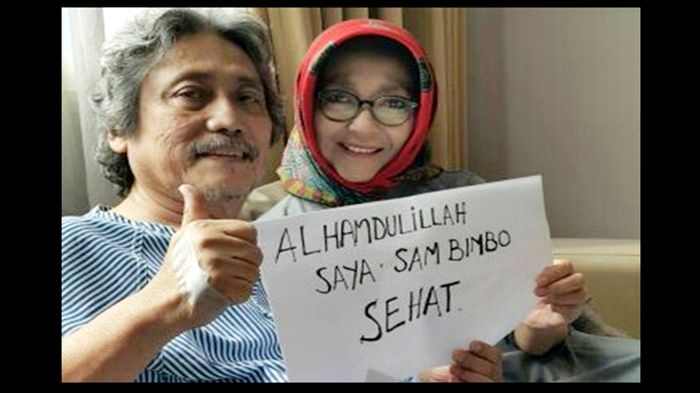 ALHAMDULILLAH
SAYA. SAM BIMBO
SEHAT.